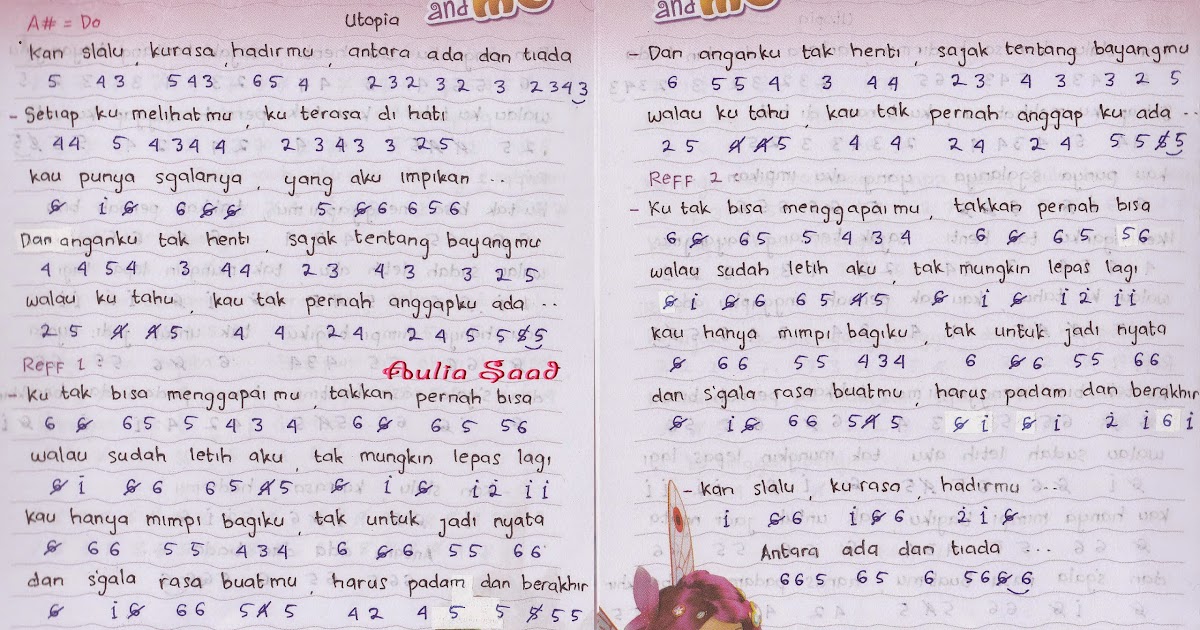 A# = Do
Utopia
and me
Kan slalu, kurasa hadirmu, antara ada dan tiada
5 4 3 5 4 3 6 5 4 2 3 2 3 2 3 2 3 4 3
- Setiap ku melihatmu, ku terasa di hati
4 4 5 4 3 4 4 2 3 4 3 3 2 5
kau punya sgalanya, yang aku impikan ..
6̸ i 6̸ 6 6̸ 6̸ 5 6̸ 6 6 5 6
Dan anganku tak henti, sajak tentang bayangmu
4 4 5 4 3 4 4 2 3 4 3 3 2 5
walau ku tahu, kau tak pernah anggapku ada ..
2 5 4̸ 4̸ 5 4 4 2 4 2 4 5 5 5̸ 5
Reff 1 :
Aulia Saad
- Ku tak bisa menggapai mu, takkan pernah bisa
6 6̸ 6 5 5 4 3 4 6 6̸ 6 5 5 6
walau sudah letih aku, tak mungkin lepas lagi
6̸ i 6̸ 6 6 5 4̸ 5 6̸ i 6̸ i 2 i i
kau hanya mimpi bagiku, tak untuk jadi nyata
6̸ 6 6 5 5 4 3 4 6 6̸ 6 5 5 6 6
dan s'gala rasa buatmu, harus padam dan berakhir
6̸ i 6̸ 6 6 5 4̸ 5 4 2 4 5 5 5̸ 5 5
and me
- Dan anganku tak henti, sajak tentang bayangmu
6 5 5 4 3 4 4 2 3 4 3 3 2 5
walau ku tahu, kau tak pernah anggap ku ada ..
2 5 4̸ 4̸ 5 4 4 2 4 2 4 5 5 5̸ 5
Reff 2 :
- Ku tak bisa menggapai mu, takkan pernah bisa
6 6̸ 6 5 5 4 3 4 6 6̸ 6 5 5 6
walau sudah letih aku, tak mungkin lepas lagi
6̸ i 6̸ 6 6 5 4̸ 5 6̸ i 6̸ i 2 i i
kau hanya mimpi bagiku, tak untuk jadi nyata
6̸ 6 6 5 5 4 3 4 6 6̸ 6 5 5 6 6
dan s'gala rasa buatmu, harus padam dan berakhir
6̸ i 6̸ 6 6 5 4̸ 5 6̸ i 6̸ i 2 i 6 i
- Kan slalu, kurasa, hadirmu ...
i 6̸ 6 i 6̸ 6 2 i 6̸
Antara ada dan tiada ...
6 6 5 6 5 6 5 6 6̸ 6